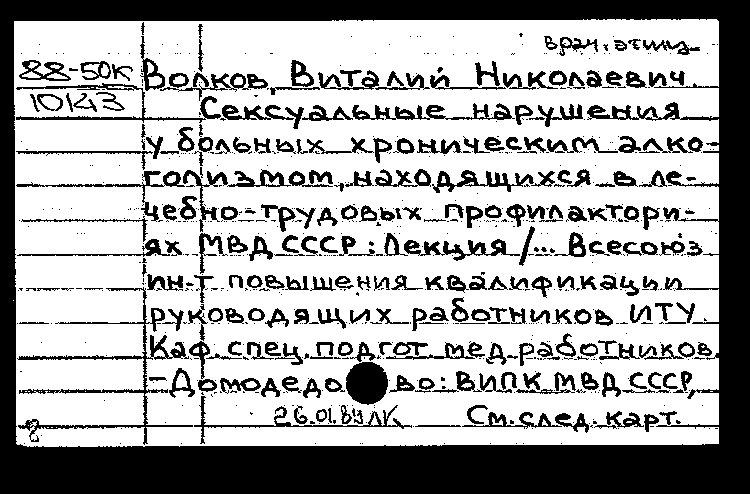 врач. этика
88-50К
10143
Волков, Виталий Николаевич.
Сексуальные нарушения
у больных хроническим алко-
голизмом, находящихся в ле-
чебно-трудовых профилактори-
ях МВД СССР: Лекция /... Всесоюз
ин-т повышения квалификации
руководящих работников ИТУ.
Каф. спец. подгот мед. работников.
-Домодедово: ВИПК МВД СССР,
26.01.89 ЛК См. след. карт.